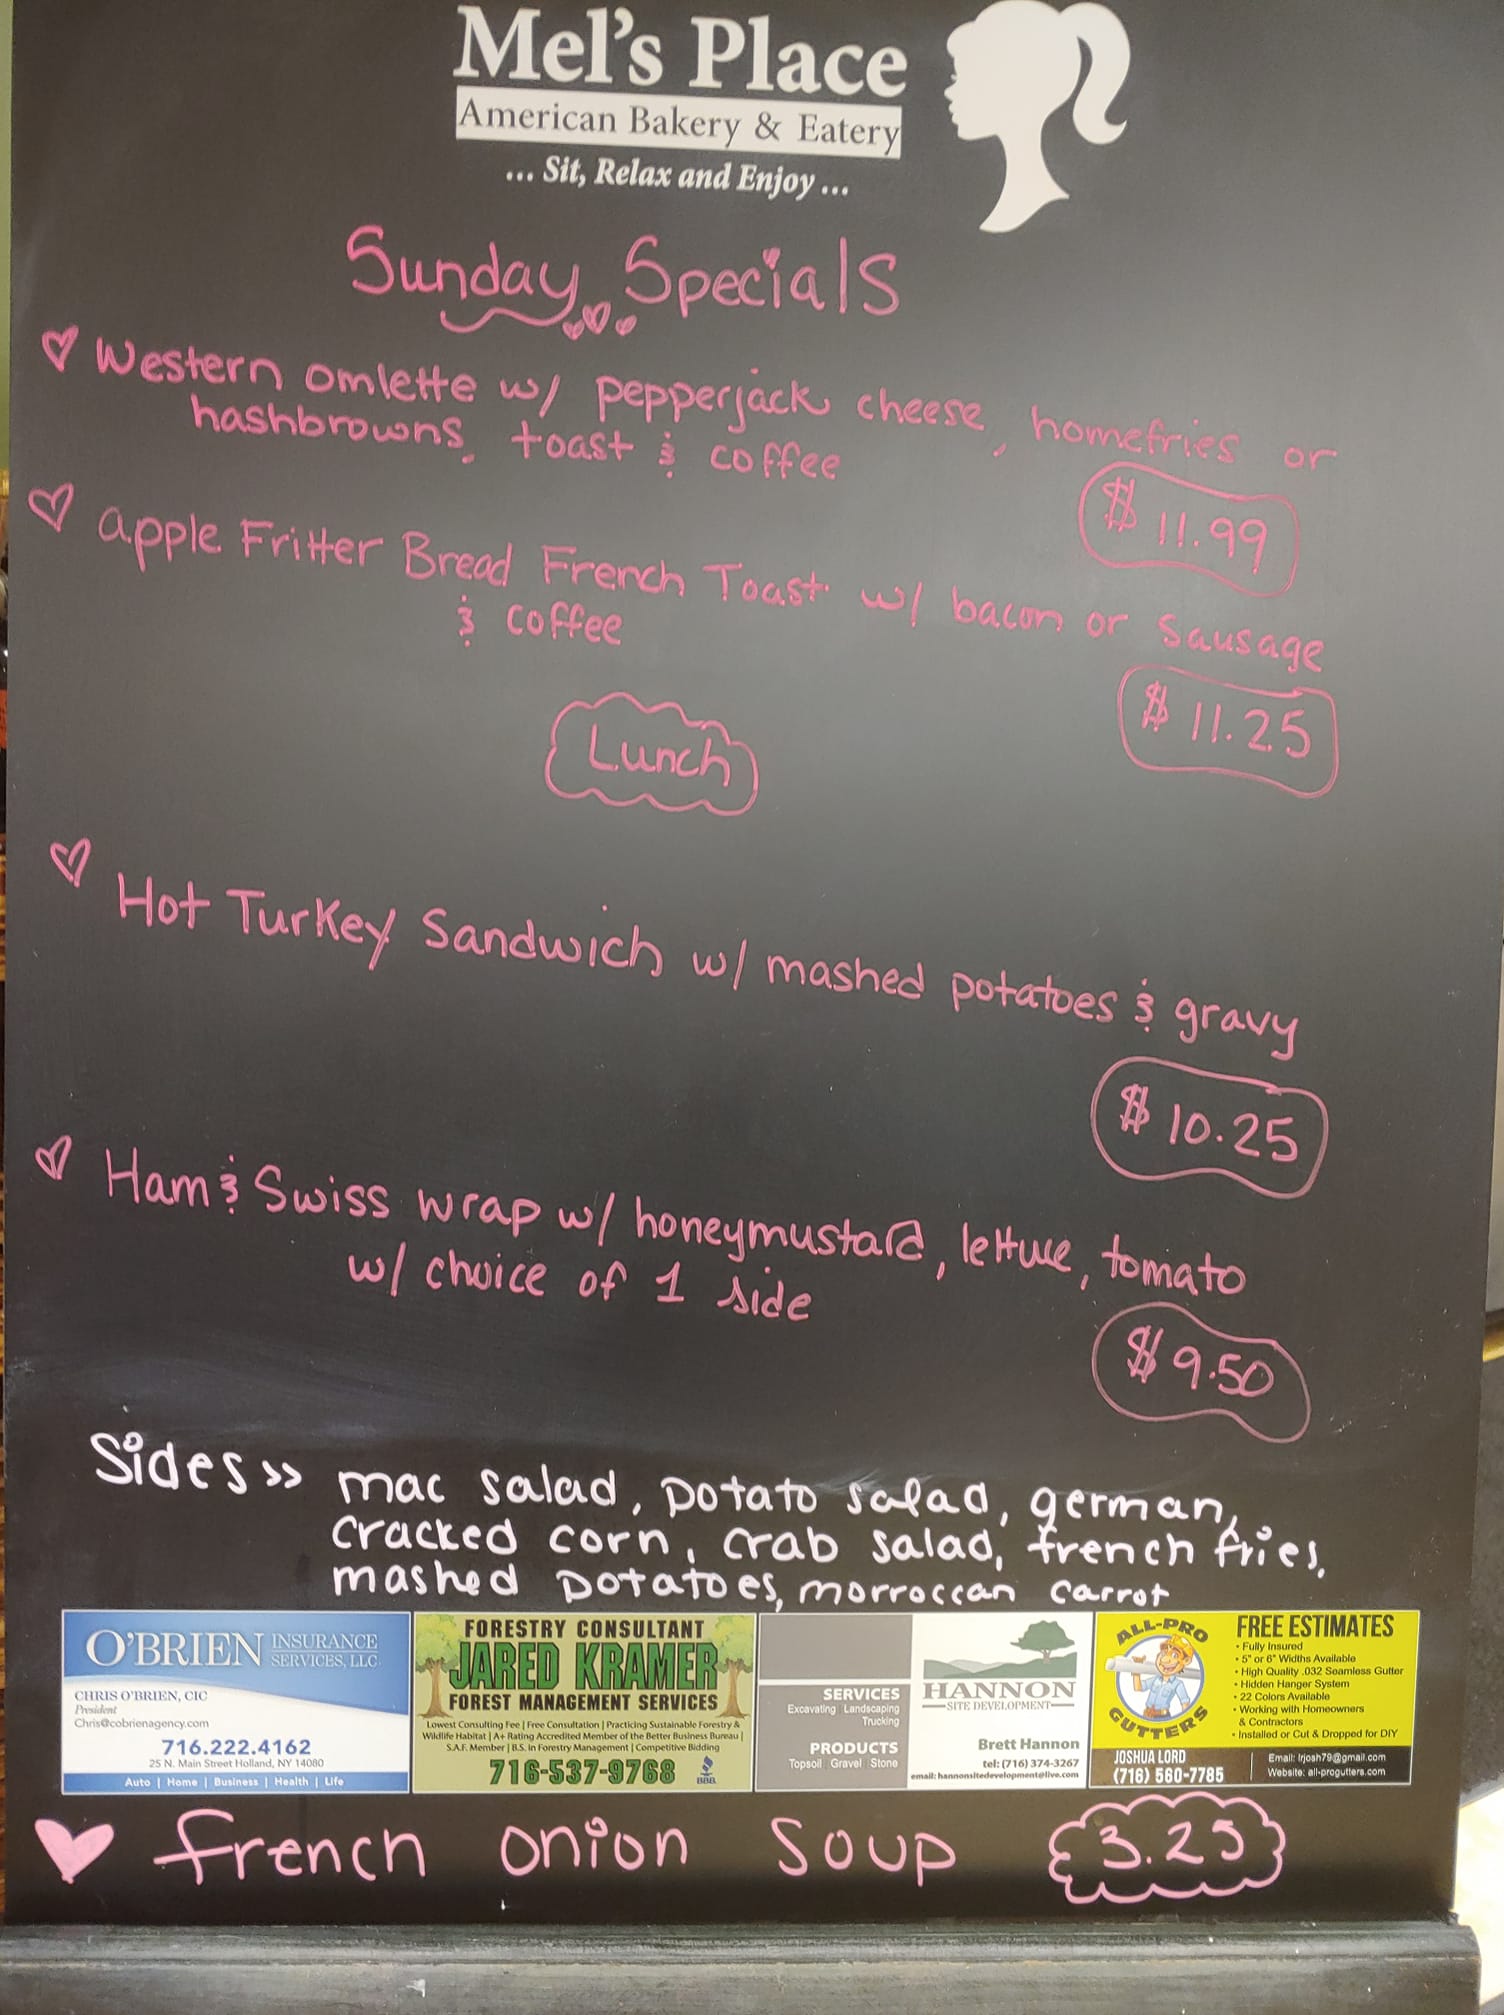 Mel's Place
American Bakery & Eatery
... Sit, Relax and Enjoy ...
Sunday Specials
Western omlette w/ pepperjack cheese, homefries or
hashbrowns, toast & coffee
$11.99
apple Fritter Bread French Toast w/ bacon or Sausage
& coffee
$11.25
Lunch
Hot Turkey Sandwich w/ mashed potatoes & gravy
$10.25
Ham & Swiss wrap w/ honeymustard, lettuce, tomato
w/ choice of 1 side
$9.50
Sides >> mac salad, potato salad, german,
cracked corn, crab salad, french fries,
mashed potatoes, morroccan carrot
O'BRIEN INSURANCE
SERVICES, LLC
CHRIS O'BRIEN, CIC
President
Chris@cobrienagency.com
716.222.4162
25 N. Main Street Holland, NY 14080
Auto | Home | Business | Health | Life
FORESTRY CONSULTANT
JARED KRAMER
FOREST MANAGEMENT SERVICES
Lowest Consulting Fee | Free Consultation | Practicing Sustainable Forestry &
Wildlife Habitat | A+ Rating Accredited Member of the Better Business Bureau |
S.A.F. Member | B.S. in Forestry Management | Competitive Bidding
716-537-9768
BBB
SERVICES
Excavating Landscaping
Trucking
PRODUCTS
Topsoil Gravel Stone
HANNON
SITE DEVELOPMENT
Brett Hannon
tel: (716) 374-3267
email: hannonsitedevelopment@live.com
ALL-PRO
GUTTERS
JOSHUA LORD
(716) 560-7785
FREE ESTIMATES
• Fully Insured
• 5" or 6" Widths Available
• High Quality .032 Seamless Gutter
• Hidden Hanger System
• 22 Colors Available
• Working with Homeowners
& Contractors
• Installed or Cut & Dropped for DIY
Email: lrjosh79@gmail.com
Website: all-progutters.com
french onion soup 3.25